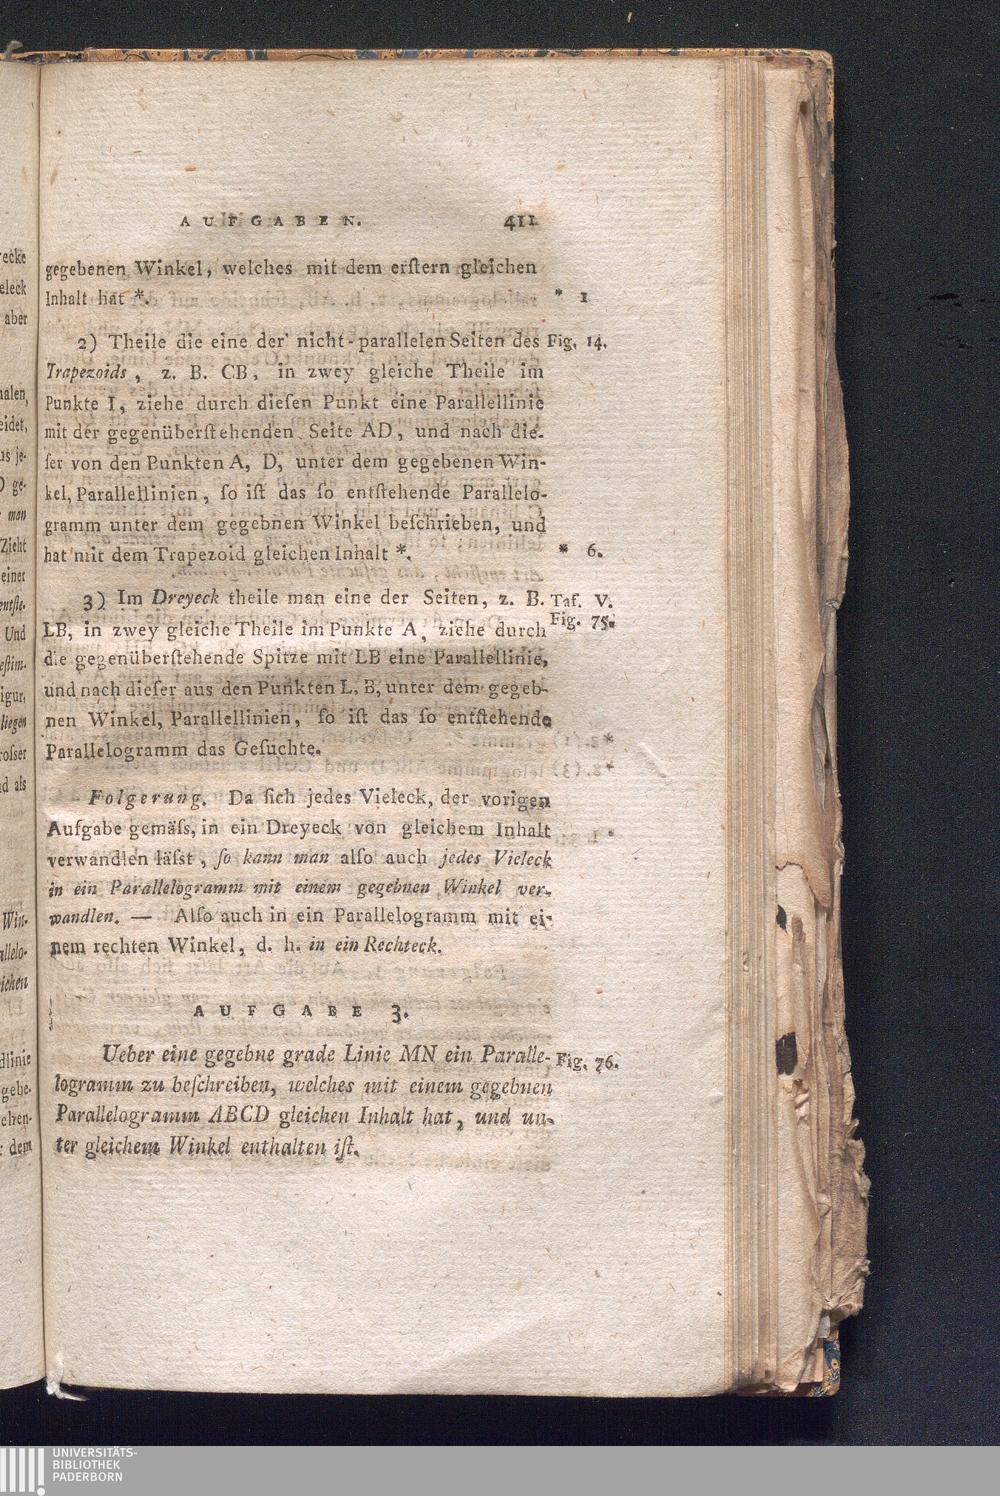 AUFGABEN. 411
gegebenen Winkel, welches mit dem erſtern gleichen
Inhalt hat *. * 1
2) Theile die eine der nicht-parallelen Seiten des Fig. 14.
Trapezoids, z. B. CB, in zwey gleiche Theile im
Punkte I, ziehe durch dieſen Punkt eine Parallellinie
mit der gegenüberſtehenden Seite AD, und nach die-
ſer von den Punkten A, D, unter dem gegebenen Win-
kel, Parallellinien, ſo iſt das ſo entſtehende Parallelo-
gramm unter dem gegebnen Winkel beſchrieben, und
hat mit dem Trapezoid gleichen Inhalt *. * 6.
3) Im Dreyeck theile man eine der Seiten, z. B. Taf. V.
LB, in zwey gleiche Theile im Punkte A, ziehe durch Fig. 75.
die gegenüberſtehende Spitze mit LB eine Parallellinie,
und nach dieſer aus den Punkten L, B, unter dem gegeb-
nen Winkel, Parallellinien, ſo iſt das ſo entſtehende
Parallelogramm das Geſuchte.
Folgerung. Da ſich jedes Vieleck, der vorigen
Aufgabe gemäſs, in ein Dreyeck von gleichem Inhalt
verwandlen läſst, ſo kann man alſo auch jedes Vieleck
in ein Parallelogramm mit einem gegebnen Winkel ver-
wandlen. — Alſo auch in ein Parallelogramm mit ei-
nem rechten Winkel, d. h. in ein Rechteck.
AUFGABE 3.
Ueber eine gegebne grade Linie MN ein Paralle- Fig. 76.
logramm zu beſchreiben, welches mit einem gegebnen
Parallelogramm ABCD gleichen Inhalt hat, und un-
ter gleichem Winkel enthalten iſt.
UNIVERSITÄTS-
BIBLIOTHEK
PADERBORN